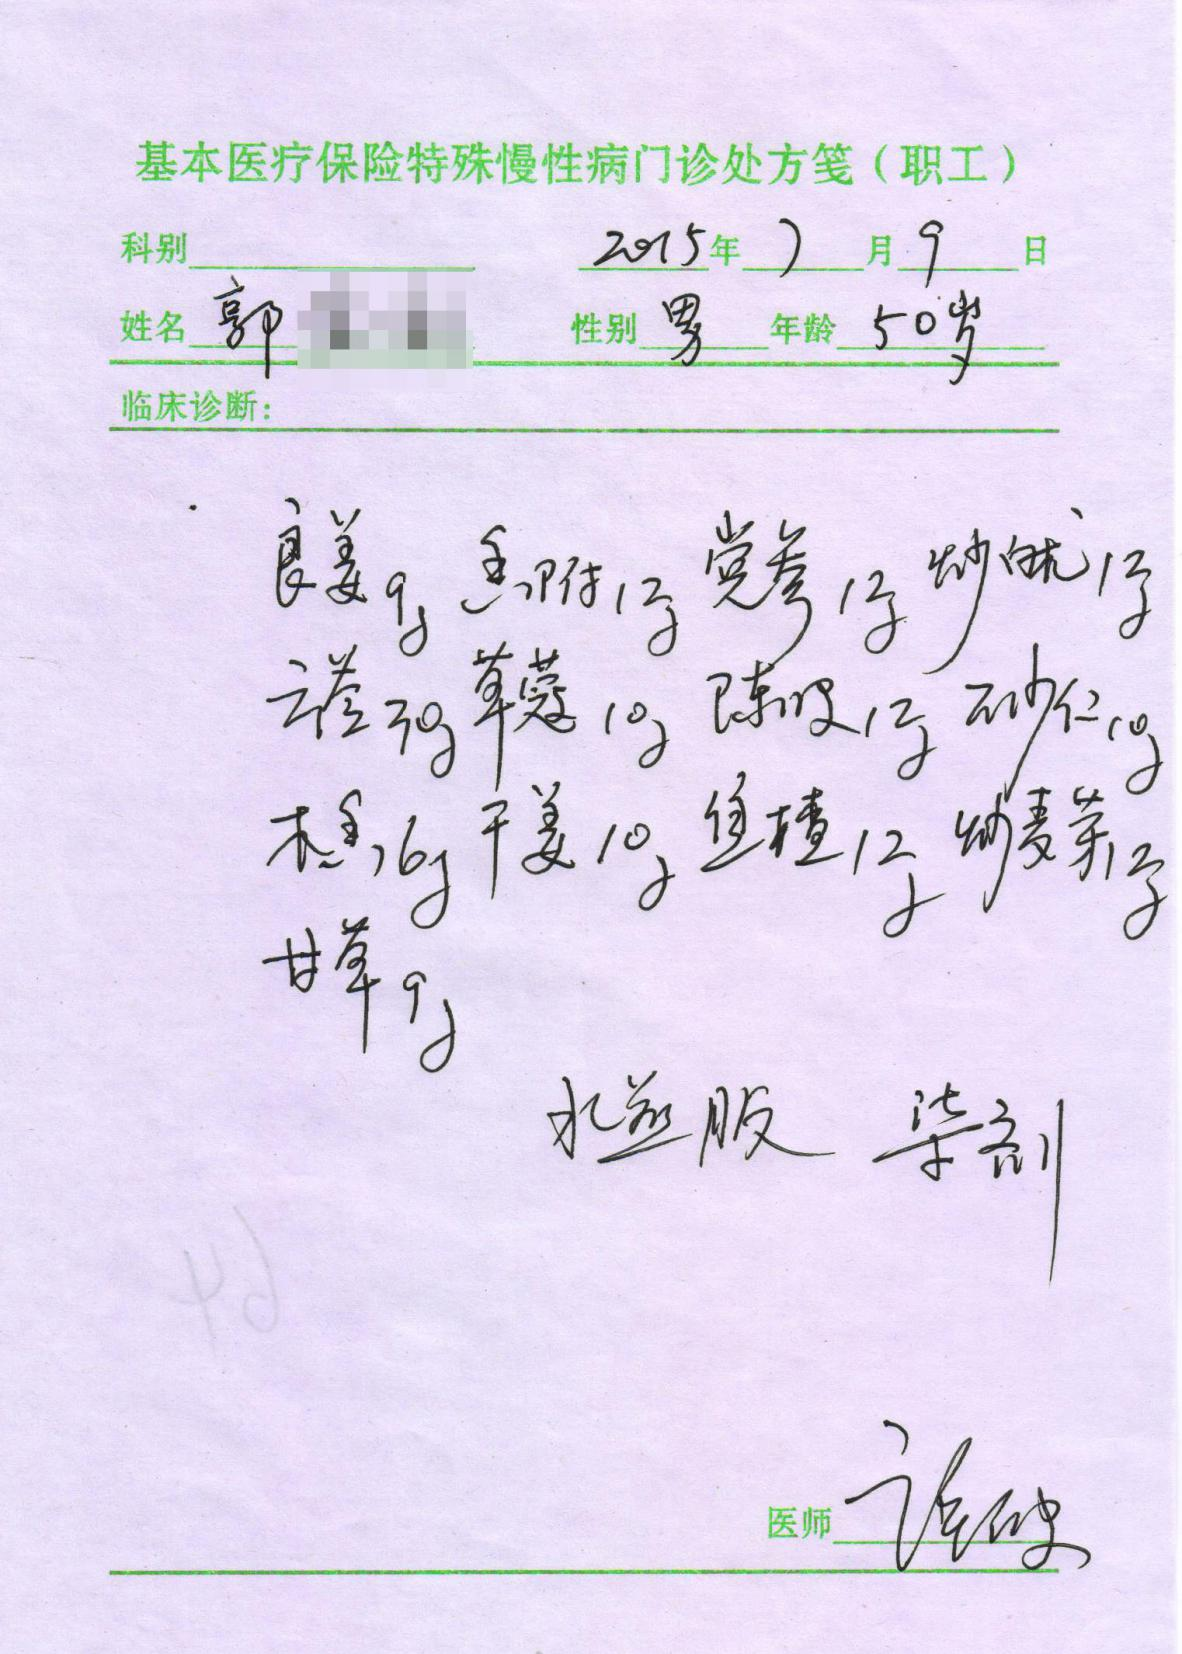 基本医疗保险特殊慢性病门诊处方笺（职工）
科别 2015年7月9日
姓名 郭 性别 男 年龄 50岁
临床诊断：
良姜9g 香附12g 党参12g 炒白术12g
云苓30g 草蔻10g 陈皮12g 砂仁10g
木香16g 干姜10g 焦楂12g 炒麦芽12g
甘草9g
水煎服 柒剂
医师